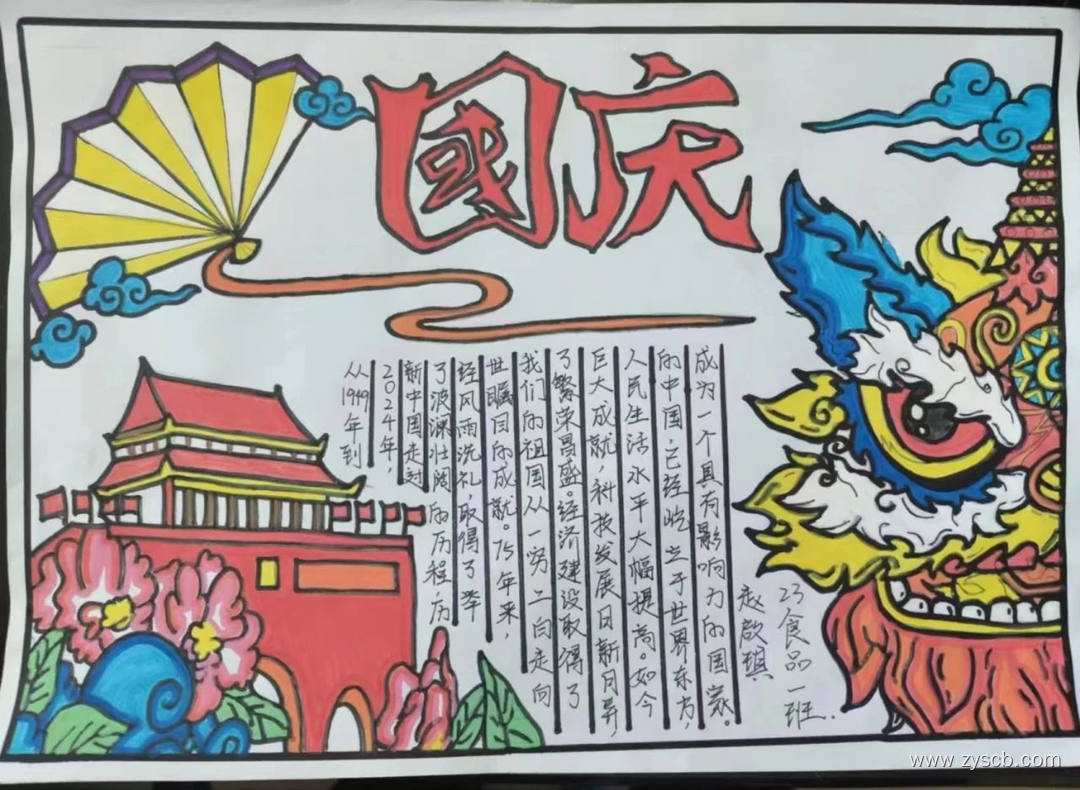 國庆
从1949年到
2024年，
新中国走过
了波澜壮阔的历程，历
经风雨洗礼，取得了举
世瞩目的成就。75年来，
我们的祖国从一穷二白走向
了繁荣昌盛。经济建设取得了
巨大成就，科技发展日新月异，
人民生活水平大幅提高。如今
的中国，已经屹立于世界东方，
成为一个具有影响力的国家。
23食品一班.
www.zyscb.com